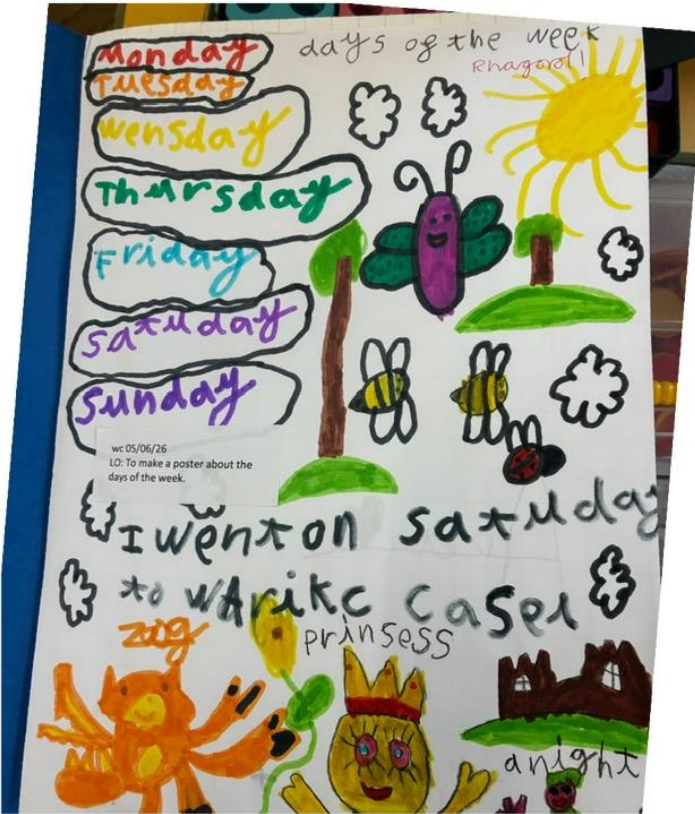 days of the week
Monday
Tuesday
wensday
Thursday
Friday
satuday
sunday
wc 05/06/26
LO: To make a poster about the
days of the week.
I went on satuday
to wArikc casel
zog
prinsess
a night